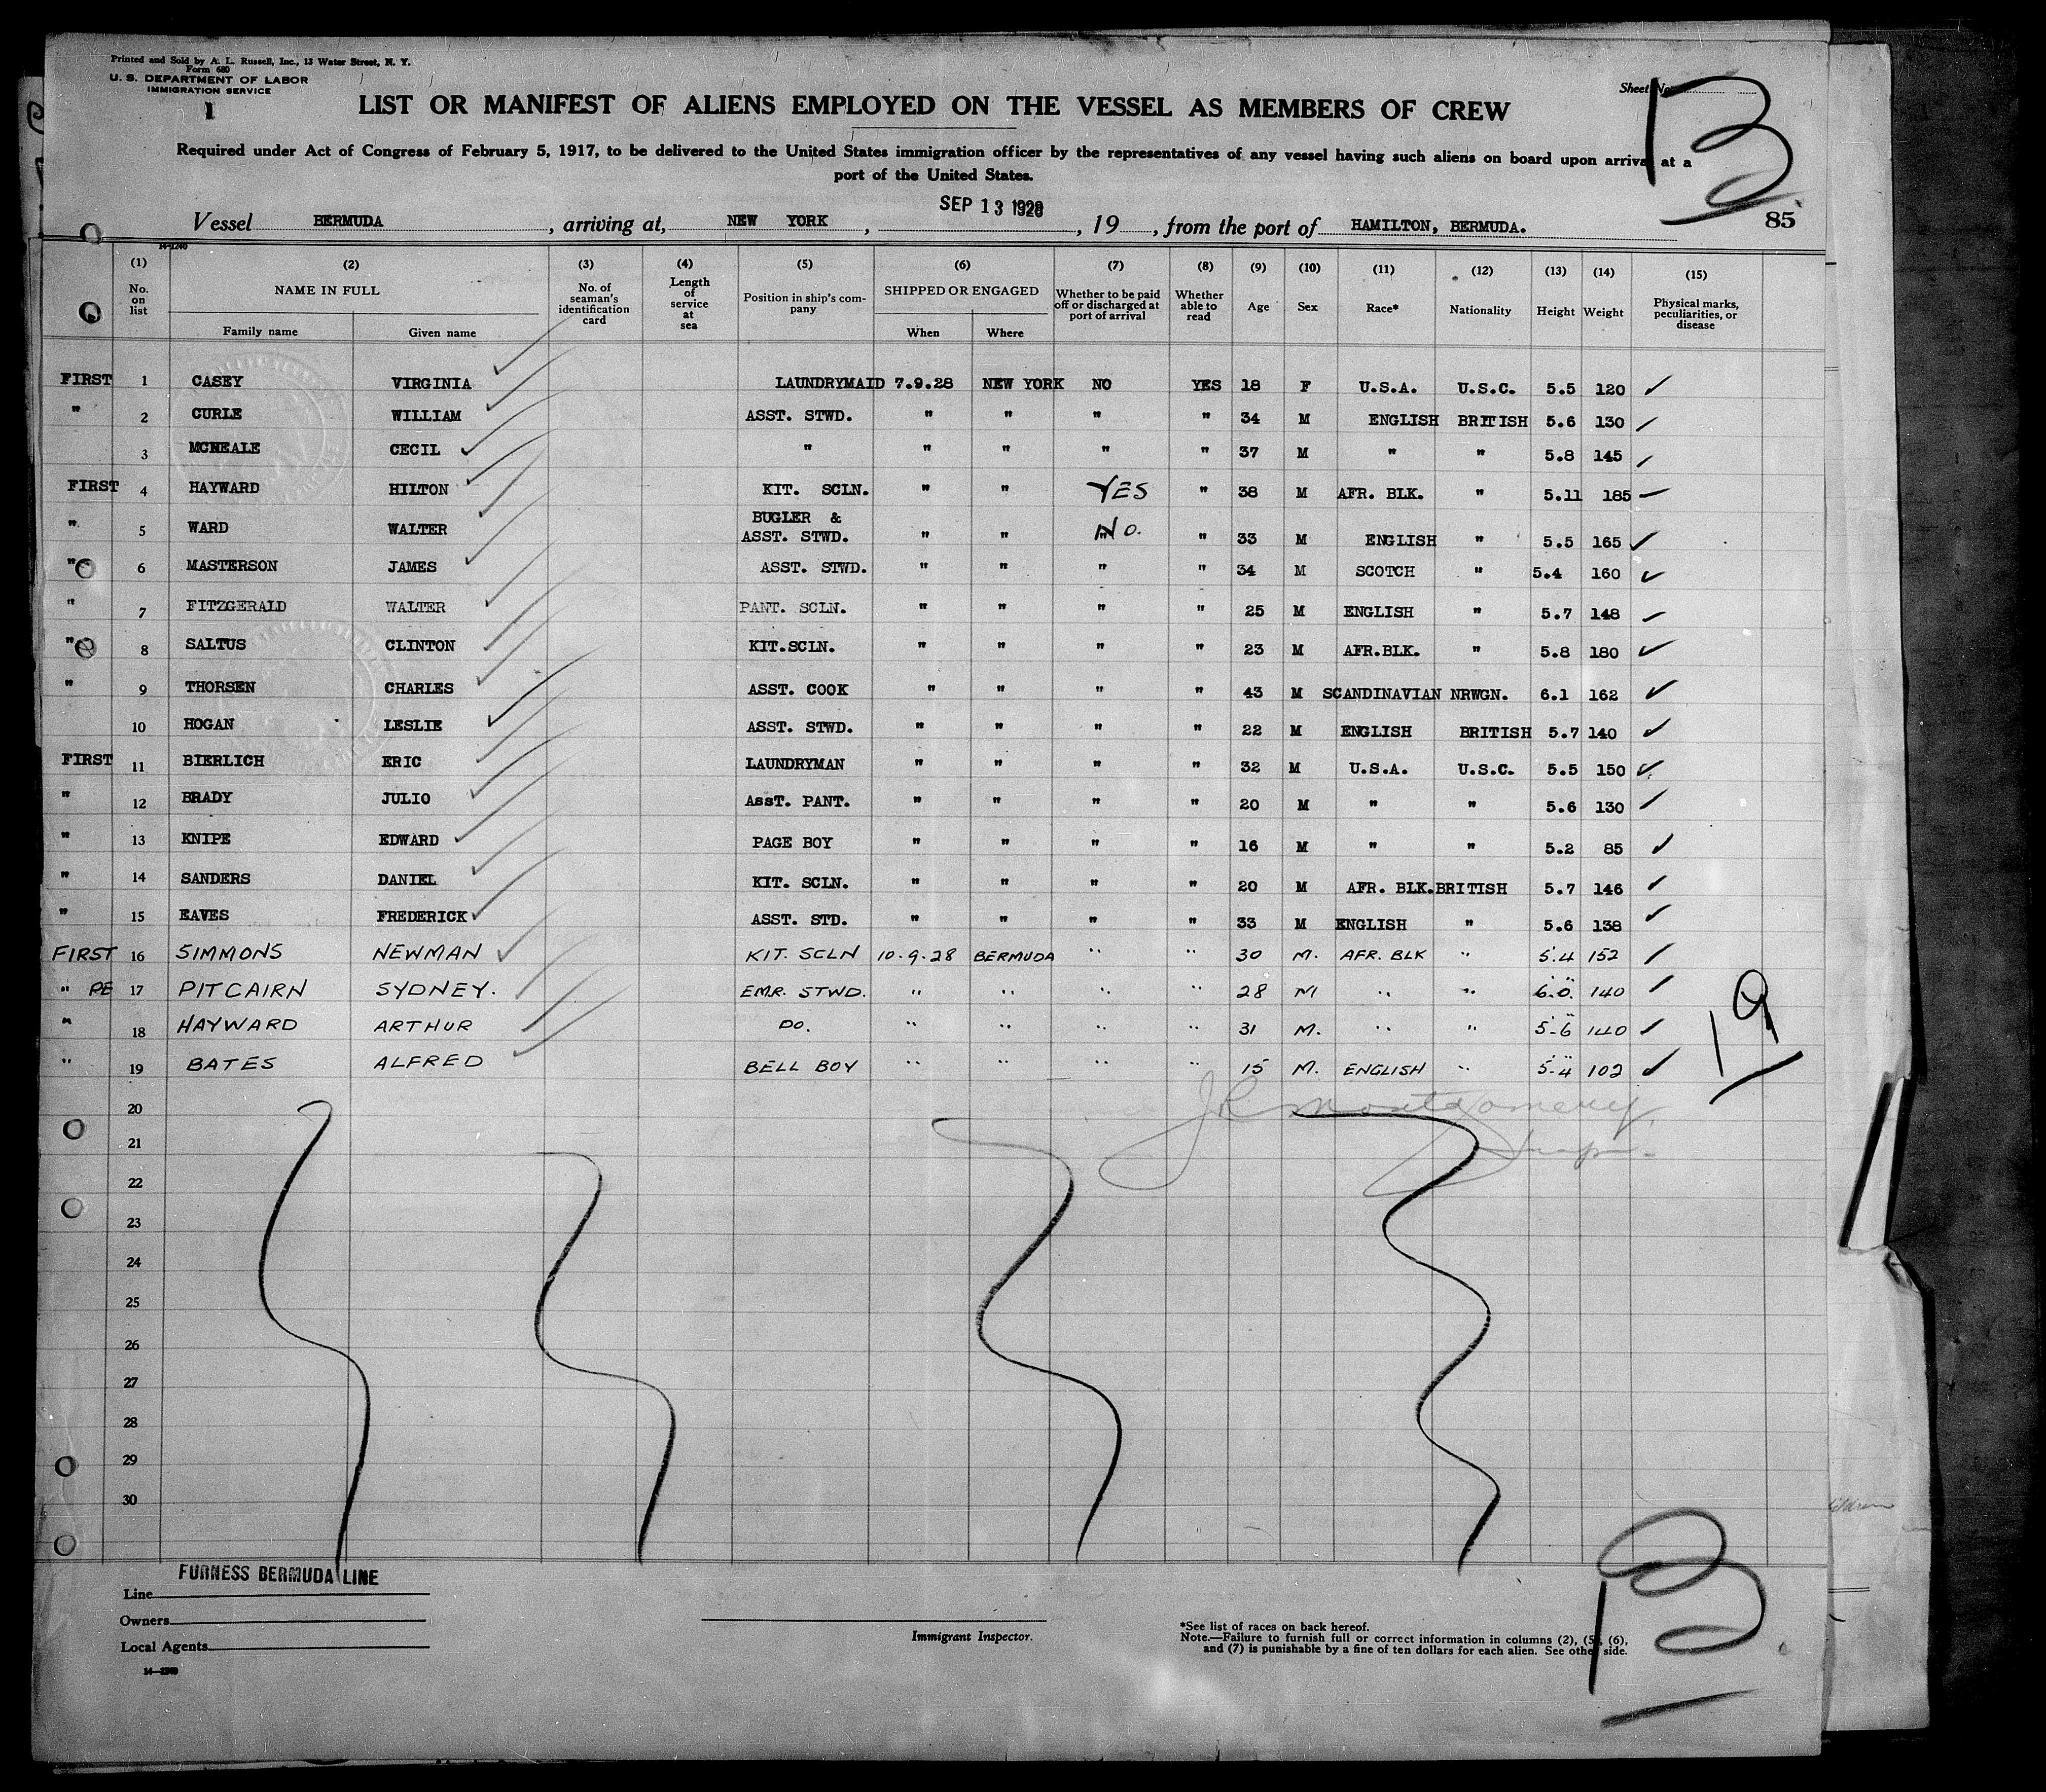 Printed and Sold by A. L. Russell, Inc., 13 Water Street, N. Y.
Form 680
U. S. DEPARTMENT OF LABOR
IMMIGRATION SERVICE
1
Sheet No.
13
LIST OR MANIFEST OF ALIENS EMPLOYED ON THE VESSEL AS MEMBERS OF CREW
Required under Act of Congress of February 5, 1917, to be delivered to the United States immigration officer by the representatives of any vessel having such aliens on board upon arrival at a
port of the United States.
SEP 13 1928
Vessel BERMUDA, arriving at, NEW YORK, , 19 , from the port of HAMILTON, BERMUDA. 85
14-1240
(1) (2) (3) (4) (5) (6) (7) (8) (9) (10) (11) (12) (13) (14) (15)
No. on list NAME IN FULL Family name Given name No. of seaman's identification card Length of service at sea Position in ship's company SHIPPED OR ENGAGED When Where Whether to be paid off or discharged at port of arrival Whether able to read Age Sex Race* Nationality Height Weight Physical marks, peculiarities, or disease
FIRST 1 CASEY VIRGINIA LAUNDRYMAID 7.9.28 NEW YORK NO YES 18 F U.S.A. U.S.C. 5.5 120 ✓
" 2 CURLE WILLIAM ASST. STWD. " " " " 34 M ENGLISH BRITISH 5.6 130 ✓
3 MCNEALE CECIL " " " " " 37 M " " 5.8 145 ✓
FIRST 4 HAYWARD HILTON KIT. SCLN. " " YES " 38 M AFR. BLK. " 5.11 185 ✓
" 5 WARD WALTER BUGLER & ASST. STWD. " " No. " 33 M ENGLISH " 5.5 165 ✓
" 6 MASTERSON JAMES ASST. STWD. " " " " 34 M SCOTCH " 5.4 160 ✓
" 7 FITZGERALD WALTER PANT. SCLN. " " " " 25 M ENGLISH " 5.7 148 ✓
" 8 SALTUS CLINTON KIT.SCLN. " " " " 23 M AFR.BLK. " 5.8 180 ✓
" 9 THORSEN CHARLES ASST. COOK " " " " 43 M SCANDINAVIAN NRWGN. 6.1 162 ✓
10 HOGAN LESLIE ASST. STWD. " " " " 22 M ENGLISH BRITISH 5.7 140 ✓
FIRST 11 BIERLICH ERIC LAUNDRYMAN " " " " 32 M U.S.A. U.S.C. 5.5 150 ✓
" 12 BRADY JULIO AssT. PANT. " " " " 20 M " " 5.6 130 ✓
" 13 KNIPE EDWARD PAGE BOY " " " " 16 M " " 5.2 85 ✓
" 14 SANDERS DANIEL KIT. SCLN. " " " " 20 M AFR. BLK. BRITISH 5.7 146 ✓
" 15 EAVES FREDERICK ASST. STD. " " " " 33 M ENGLISH " 5.6 138 ✓
FIRST 16 SIMMONS NEWMAN KIT. SCLN 10.9.28 BERMUDA " " 30 M. AFR. BLK " 5.4 152 ✓
" PE 17 PITCAIRN SYDNEY. EMR. STWD. " " " " 28 M " " 6.0. 140 ✓
" 18 HAYWARD ARTHUR DO. " " " " 31 M. " " 5-6 140 ✓
" 19 BATES ALFRED BELL BOY " " " " 15 M. ENGLISH " 5-4 102 ✓
19
20
J R Montgomery
21
22
23
24
25
26
27
28
29
30
FURNESS BERMUDA LINE
Line
Owners
Local Agents
14—1240
Immigrant Inspector.
*See list of races on back hereof.
Note.—Failure to furnish full or correct information in columns (2), (5), (6),
and (7) is punishable by a fine of ten dollars for each alien. See other side.
13